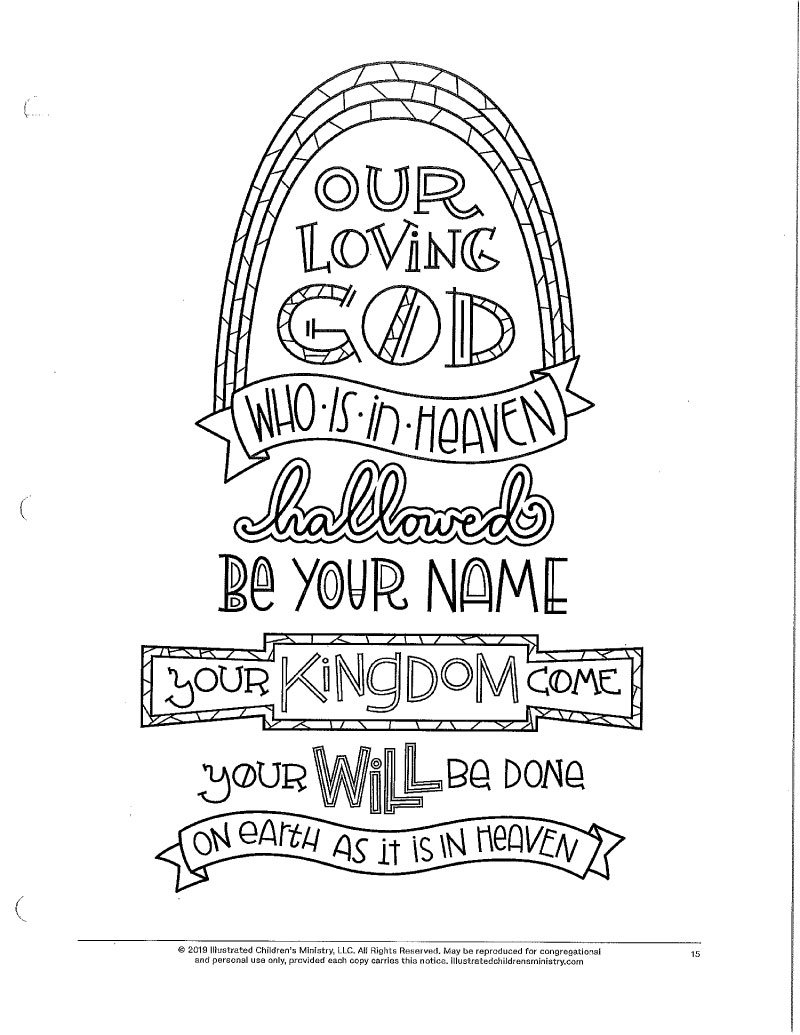 OUR
LOViNG
GOD
WHO·IS·in·HeAVEN
hallowed
Be YOUR NAME
YOUR KiNgDOM COME
YOUR WiLL Be DONe
ON eArtH AS it iS IN HeAVEN
© 2019 Illustrated Children's Ministry, LLC. All Rights Reserved. May be reproduced for congregational
and personal use only, provided each copy carries this notice. illustratedchildrensministry.com
15